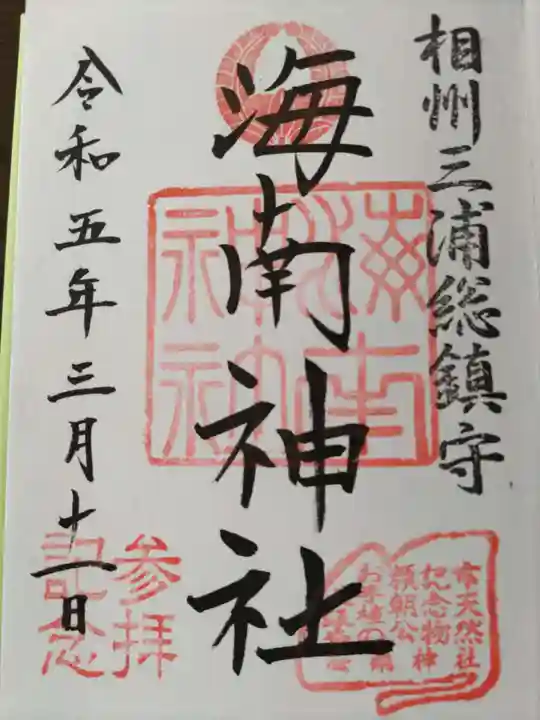 相州三浦総鎮守
海南神社
令和五年三月十一日
海南神社
参拝
記念
市天然
記念物
頼朝公
お手植の